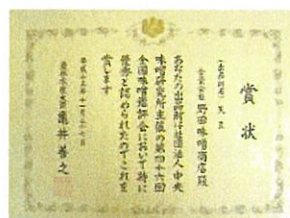 賞状
(出品財名) 天五
合資会社 野田味噌商店殿
あなたの出品財は社団法人中央
味噌研究所主催の第四十六回
全国味噌鑑評会において特に
優秀と認められたのでこれを
賞します
平成十五年十一月二十七日
農林水産大臣 亀井善之